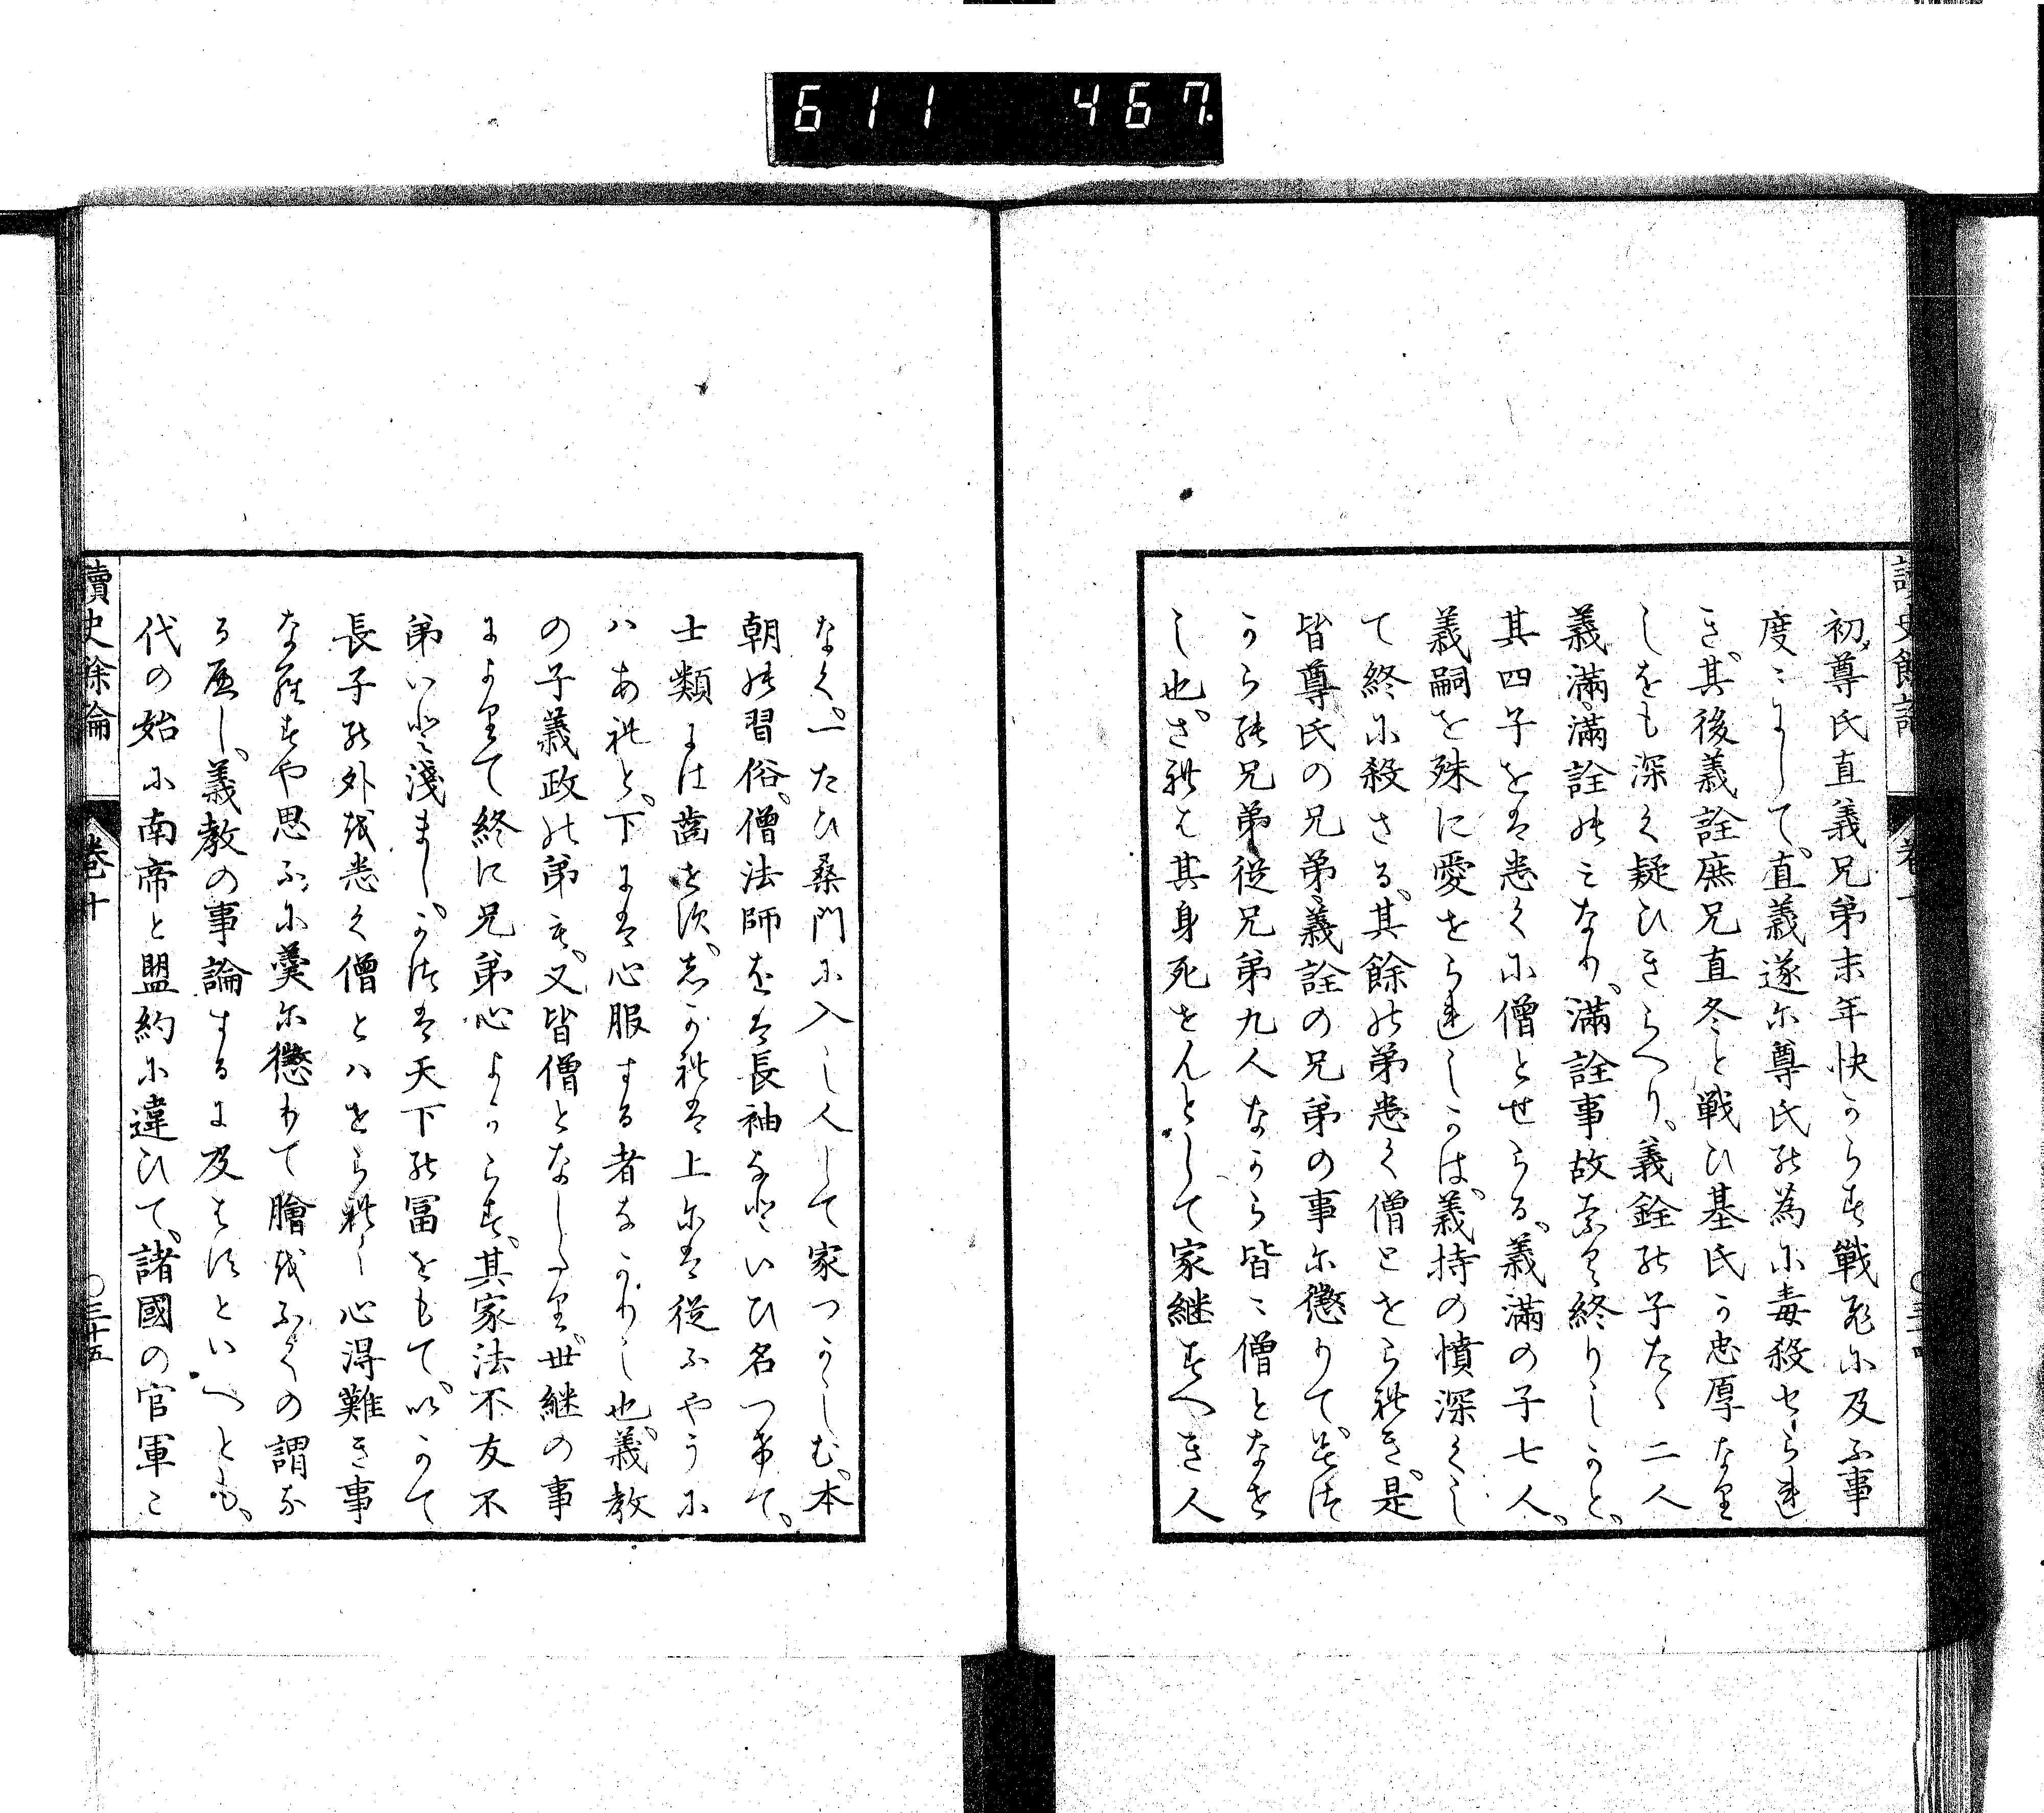 611 467.
讀史餘論 卷十
初、尊氏直義兄弟末年快からす戰死に及ふ事
度〻にして、直義遂に尊氏の為に毒殺せられ
き、其後義詮庶兄直冬と戰ひ基氏か忠厚なり
しをも深く疑ひきらへり、義銓の子たゝ二人
義滿、滿詮のミなり、滿詮事故なく終りしかと、
其四子をは悉くに僧とせらる、義滿の子七人、
義嗣を殊に愛せられしかは、義持の憤深くし
て終に殺さる、其餘の弟悉く僧とせられき、是
皆尊氏の兄弟、義詮の兄弟の事に懲りて、然
からの兄弟從兄弟九人なから皆〻僧となせ
し也、されは其身死せんとして家継すへき人
なく、一たひ桑門に入し人して家つかしむ、本
朝の習俗、僧法師をは長袖なといひ名つけて、
士類には齒せす、しかれは上には從ふやうに
ハあれと、下には心服する者なかりし也、義教
の子義政の弟も、又皆僧となしたり、世継の事
によりて終に兄弟心よからす、其家法不友不
弟いと淺まし、かつは天下の冨をもて、いかて
長子の外を悉く僧とハせられし心得難き事
ならすや思ふに羹に懲りて膾をふくの謂な
るへし、義教の事論するに及はすといへとも、
代の始に南帝と盟約に違ひて、諸國の官軍こ
讀史餘論 卷十 〇三十五